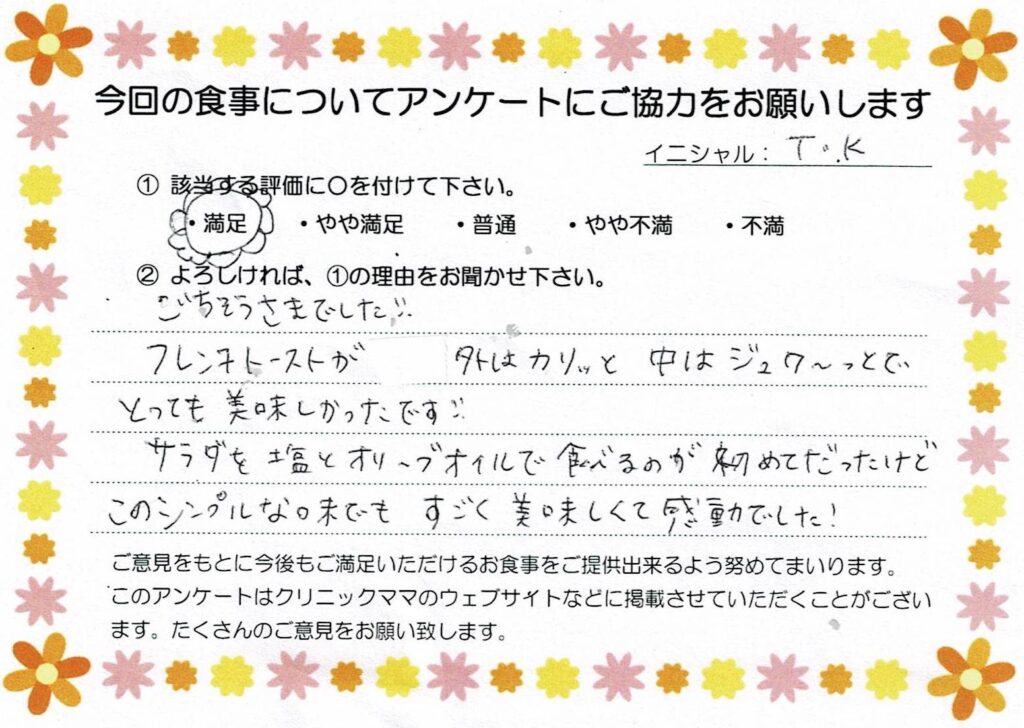 今回の食事についてアンケートにご協力をお願いします
イニシャル: T.K
① 該当する評価に〇を付けて下さい。
・満足 ・やや満足 ・普通 ・やや不満 ・不満
② よろしければ、①の理由をお聞かせ下さい。
ごちそうさまでした
フレンチトーストが 外はカリッと 中はジュワ〜っとで
とっても美味しかったです
サラダを塩とオリーブオイルで食べるのが初めてだったけど
このシンプルな味でも すごく美味しくて感動でした!
ご意見をもとに今後もご満足いただけるお食事をご提供出来るよう努めてまいります。
このアンケートはクリニックママのウェブサイトなどに掲載させていただくことがござい
ます。たくさんのご意見をお願い致します。